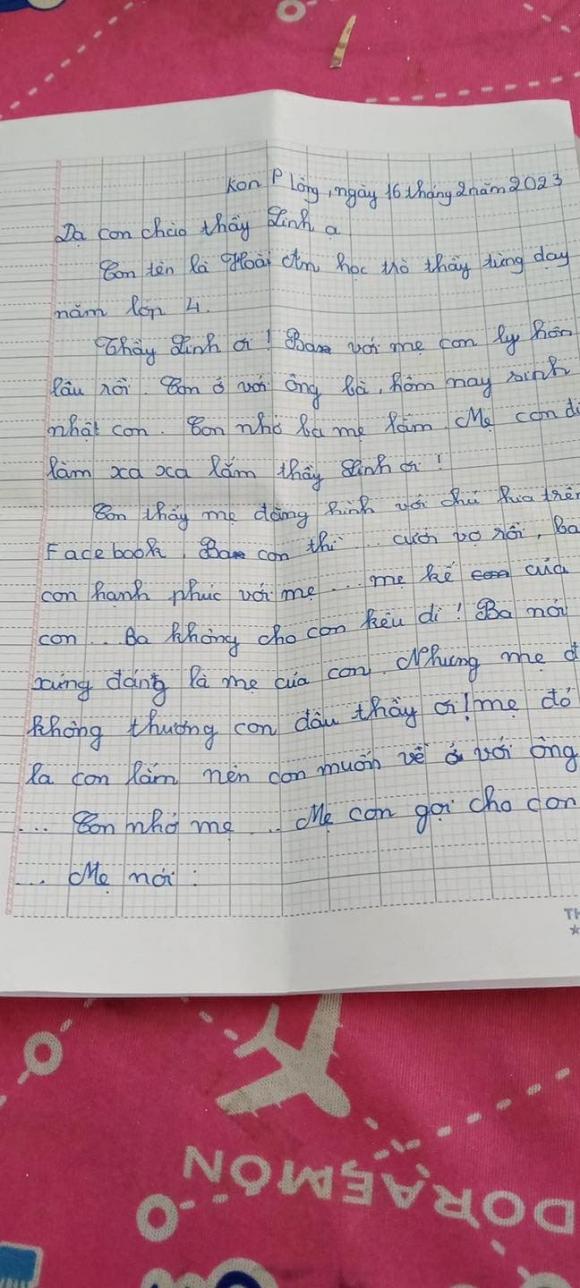 Kon P Lông, ngày 16 tháng 2 năm 2023
Dạ con chào thầy Linh ạ
Con tên là Hoài Ân học trò thầy từng dạy
năm lớp 4.
Thầy Linh ơi! Ba với mẹ con ly hôn
lâu rồi. Con ở với ông bà, hôm nay sinh
nhật con. Con nhớ ba mẹ lắm. Mẹ con đi
làm xa xa lắm thầy Linh ơi!
Con thấy mẹ đăng hình với chú kia trên
Facebook. Ba con thì... cưới vợ rồi, ba
con hạnh phúc với mẹ... mẹ kế của
con... Ba không cho con kêu dì! Ba nói
xứng đáng là mẹ của con. Nhưng mẹ đ
không thương con đâu thầy ơi! mẹ đó
la con lắm nên con muốn về ở với ông
... Con nhớ mẹ... Mẹ con gọi cho con
... Mẹ nói:
TH
DORAEMON